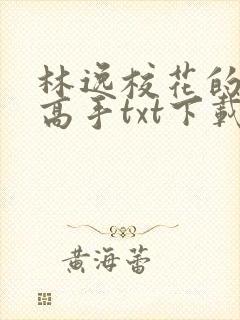 林逸校花的
高手txt下載
黄海蕾